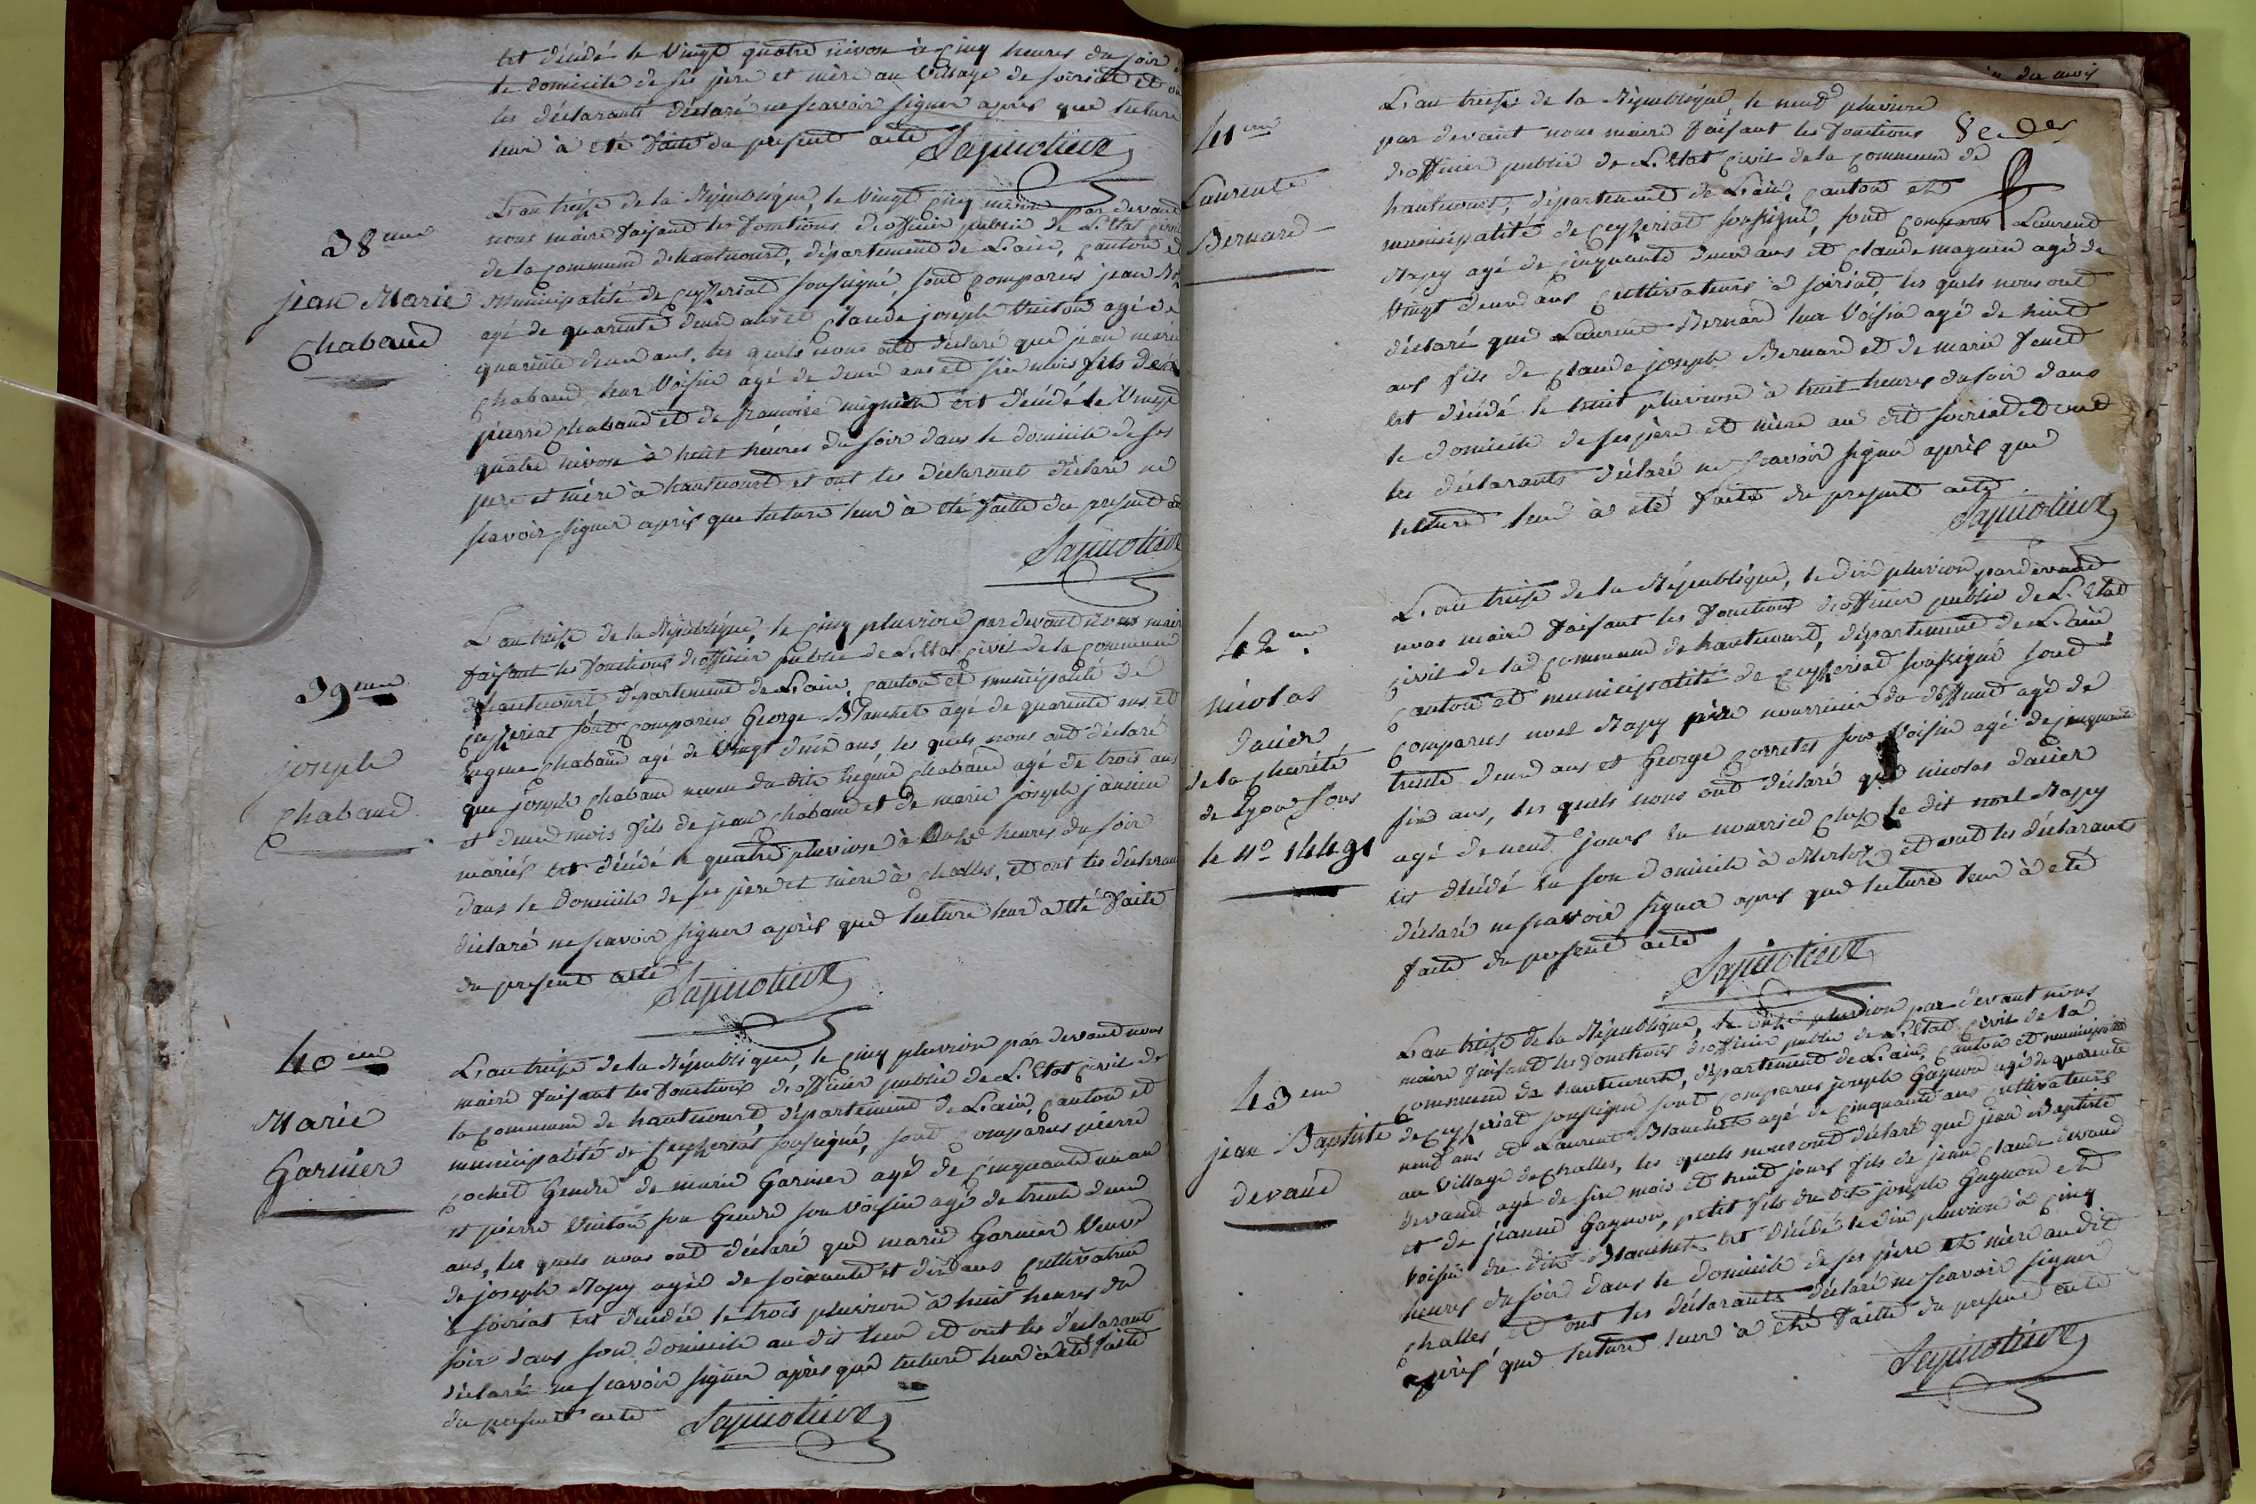 est décédé le vingt quatre nivose à cinq heures du soir
le domicile de ses père et mère au village de soiriat et
les déclarants déclaré ne scavoir signer après que lecture
leur à été faite du present acte
38eme
jean Marie
Chabaud
L'an treise de la République, le vingt cinq nivose par devant
nous maire faisant les fonctions d'officier public de L'Etat civil
de la commune d'hautecourt, département de L'ain, canton et
municipalité de ceyzeriat soussigné, sont comparus jean
agé de quarente deux ans et Claude joseph Vuiton agé de
quarente deux ans, les quels nous ont déclaré que jean marie
Chabaud leur Voisin âgé de deux ans et six mois fils de
pierre Chabaud et de francoise mignion est décédé le vingt
quatre nivose à huit heures du soir dans le domicile de ses
père et mère à hautecourt et ont les déclarants déclaré ne
scavoir signer après que lecture leur à été faitte du present
39eme
joseph
Chabaud
L'an treise de la République, le cinq pluviose par devant nous maire
faisant les fonctions d'officier public de L'Etat civil de la commune
d'hautecourt département de L'ain, canton et municipalité de
ceyzeriat sont comparus George Blanchet agé de quarente ans et
hugene Chabaud agé de Vingt deux ans, les quels nous ont déclaré
que joseph Chabaud neveu du dit hugene Chabaud agé de trois ans
et deux mois fils de jean Chabaud et de marie joseph jannin
mariés est décédé le quatre pluviose à heures du soir
dans le domicile de ses père et mère à challes, et ont les déclarants
déclaré ne scavoir signer après que lecture leur à été faite
du present acte
40eme
Marie
Garnier
L'an treise de la République, le cinq pluviose par devant nous
maire faisant les fonctions d'officier public de L'Etat civil de
la commune de hautecourt, département de L'ain, canton et
municipalité de ceyzeriat soussigné, sont comparus pierre
cochet Gendre de marie Garnier agé de cinquante un an
et pierre Vuiton son Gendre son voisin agé de trente deux
ans, les quels nous ont déclaré que marie Garnier Veuve
de joseph Mapy agée de soixante et dix ans cultivatrice
à soiriat est décédée le trois pluviose à huit heures du
soir dans son domicile au dit lieu et ont les déclarants
déclaré ne scavoir signer après que lecture leur à été faite
du present acte
41eme
Laurente
Bernard
L'an treise de la République le neuf pluviose
par devant nous maire faisant les fonctions
d'officier public de L'Etat civil de la commune de
hautecourt, département de L'ain, canton et
municipalité de ceyzeriat soussigné, sont comparus Laurend
Mapy agé de cinquante deux ans et Claude magnin agé de
Vingt deux ans cultivateurs à soiriat, les quels nous ont
déclaré que Laurent Bernard leur Voisin agé de huit
ans fils de claude joseph Bernard et de marie
est décédé le huit pluviose à huit heures du soir dans
le domicile de ses père et mère au dit soiriat et ont
les déclarants déclaré ne scavoir signer après que
lecture leur à été faite du present acte
42eme
nicolas
dacier
de la Charité
de Lyon sous
le n° 14491
L'an treise de la République, le dix pluviose par devant
nous maire faisant les fonctions d'officier public de L'Etat
civil de la commune de hautecourt, département de L'ain
canton et municipalité de ceyzeriat soussigné sont
comparus noel Mapy père nourricier du deffunt agé de
trente deux ans et George corretet son Voisin agé de cinquante
six ans, les quels nous ont déclaré que nicolas dacier
agé de neuf jours en nourrice chez le dit noel Mapy
est décédé en son domicile à Merloz et ont les déclarants
déclaré ne scavoir signer après que lecture leur à été
faite du present acte
43eme
jean Baptiste
devaud
L'an treise de la République, le onze pluviose par devant nous
maire faisant les fonctions d'officier public de L'Etat civil de la
commune de hautecourt, département de L'ain, canton et municipalité
de ceyzeriat soussigné sont comparus joseph Gagnon agé de quarente
neuf ans et Laurent Blanchet agé de cinquante ans cultivateurs
au Village de challes, les quels nous ont déclaré que jean Baptiste
devaud agé de six mois et huit jours fils de jean claude devaud
et de jeanne Gagnon, petit fils du dit joseph Gagnon et
voisin du dit Blanchet est décédé le dix pluviose à cinq
heures du soir dans le domicile de ses père et mère au dit
challes et ont les déclarants déclaré ne scavoir signer
après que lecture leur à été faitte du present acte